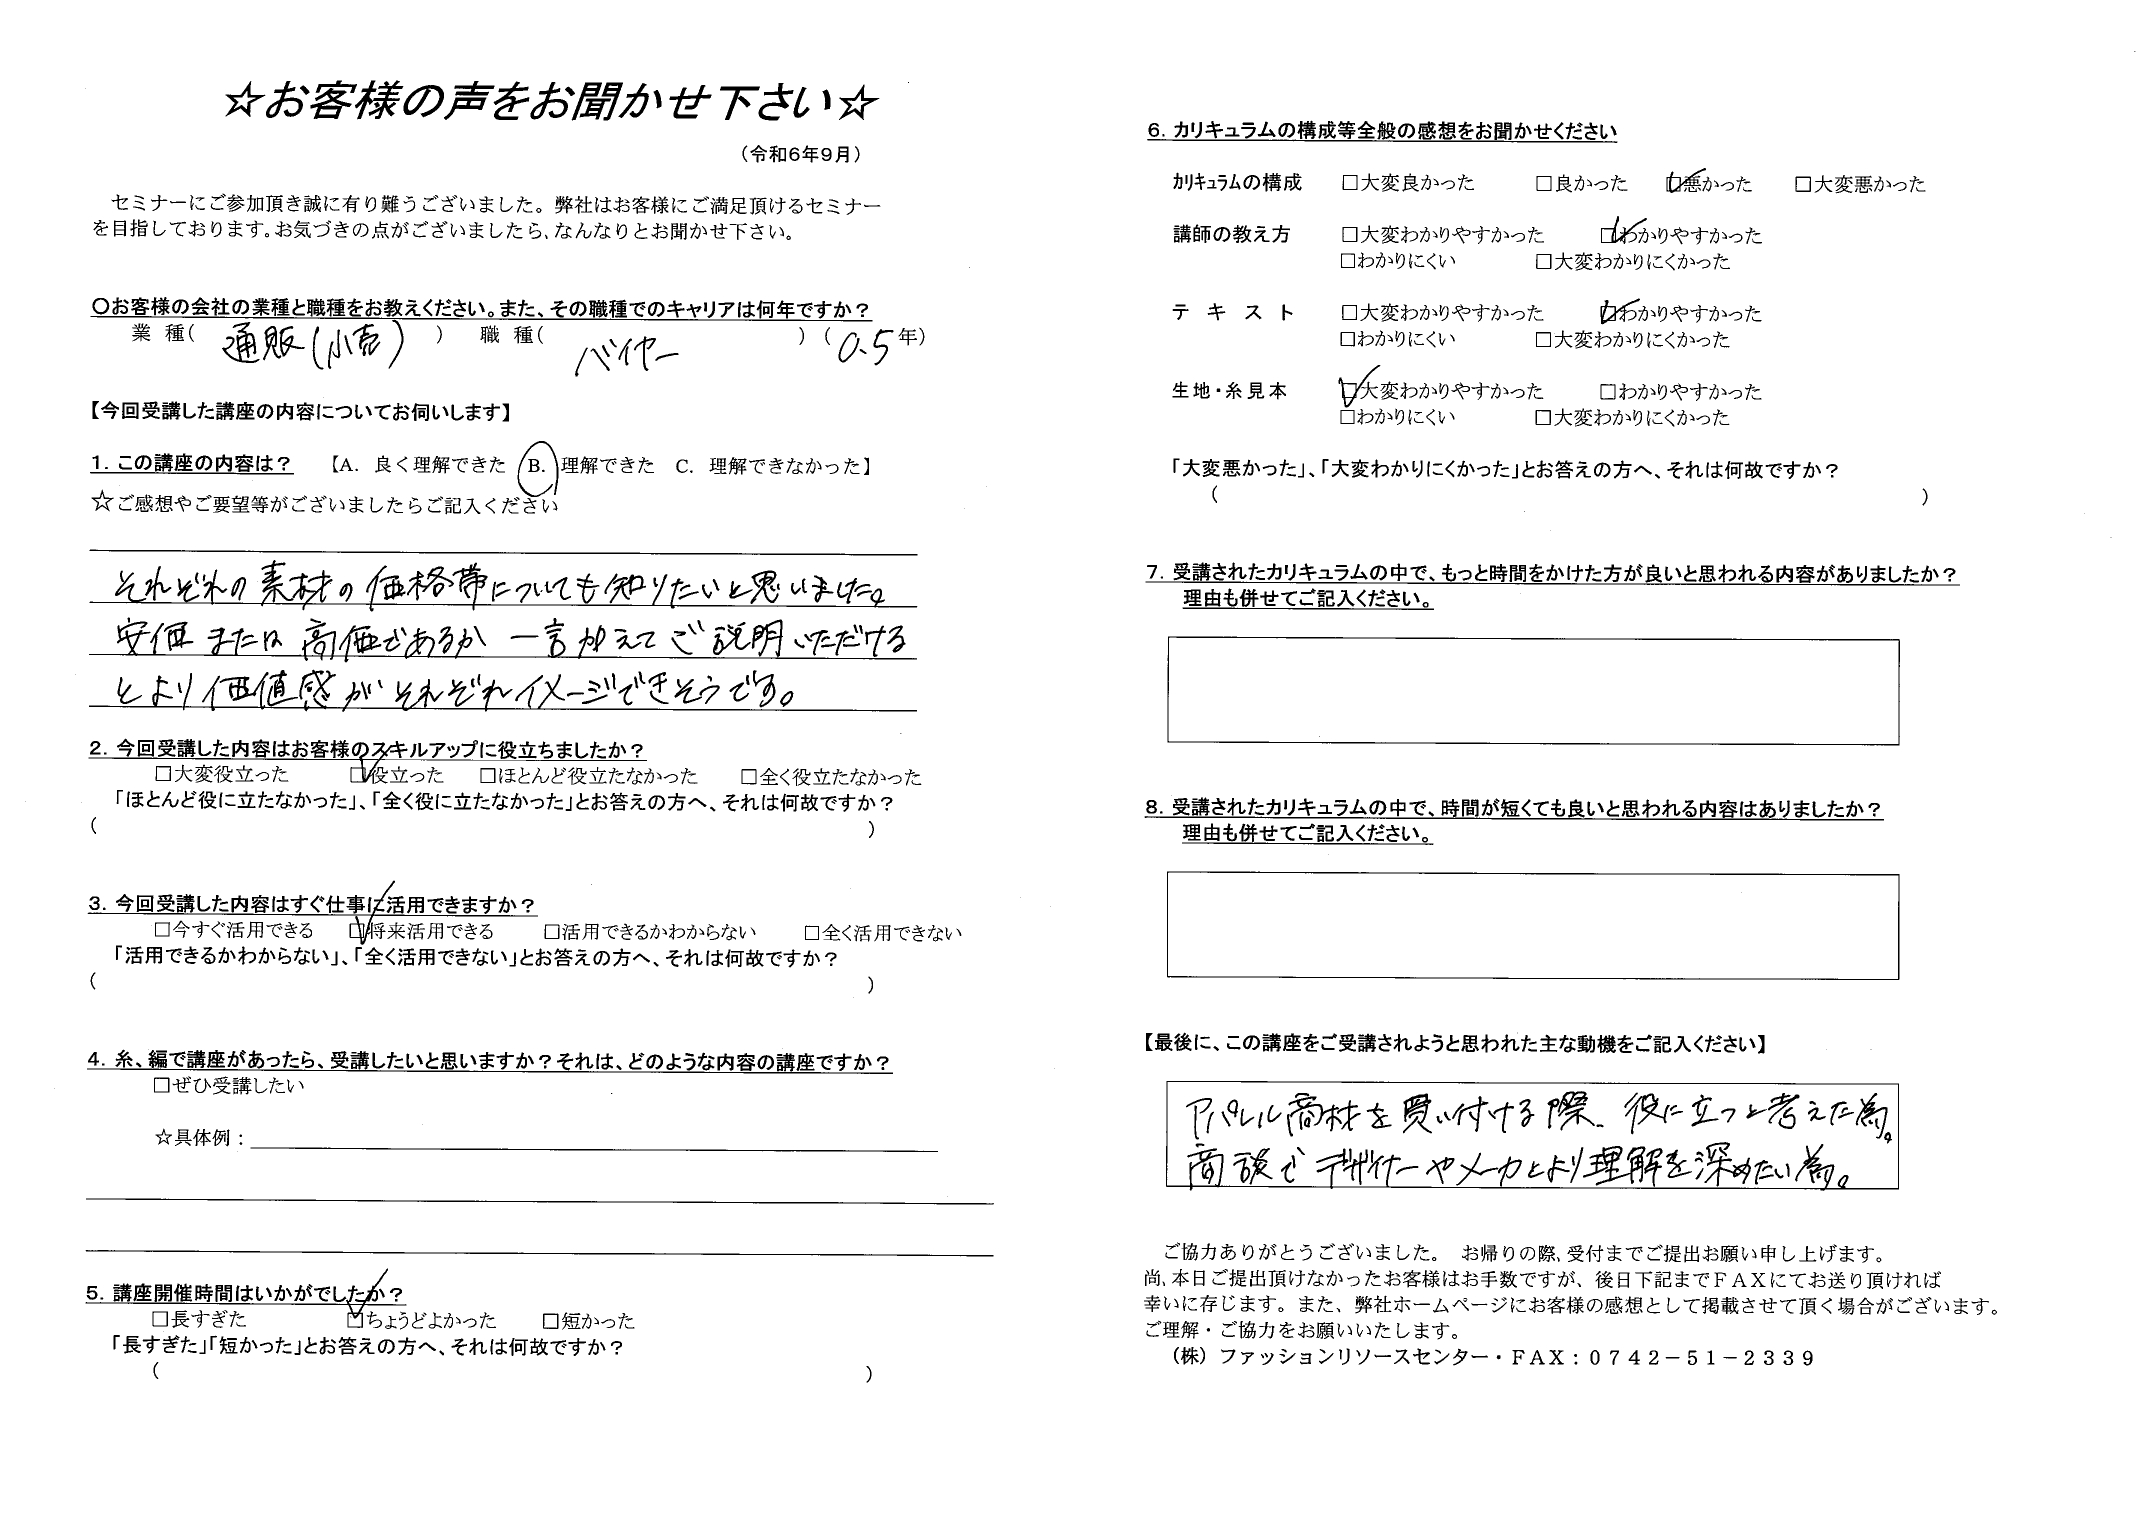 ☆お客様の声をお聞かせ下さい☆
（令和6年9月）
セミナーにご参加頂き誠に有り難うございました。弊社はお客様にご満足頂けるセミナー
を目指しております。お気づきの点がございましたら、なんなりとお聞かせ下さい。
○お客様の会社の業種と職種をお教えください。また、その職種でのキャリアは何年ですか？
業 種( 通販(小売) ) 職 種( バイヤー ) ( 0.5 年)
【今回受講した講座の内容についてお伺いします】
1. この講座の内容は？ 【A. 良く理解できた B. 理解できた C. 理解できなかった】
☆ご感想やご要望等がございましたらご記入ください
それぞれの素材の価格帯についても知りたいと思いました。
安価または高価であるか一言加えてご説明いただける
とより価値感がそれぞれイメージできそうです。
2. 今回受講した内容はお客様のスキルアップに役立ちましたか？
□大変役立った ☑役立った □ほとんど役立たなかった □全く役立たなかった
「ほとんど役に立たなかった」、「全く役に立たなかった」とお答えの方へ、それは何故ですか？
( )
3. 今回受講した内容はすぐ仕事に活用できますか？
□今すぐ活用できる ☑将来活用できる □活用できるかわからない □全く活用できない
「活用できるかわからない」、「全く活用できない」とお答えの方へ、それは何故ですか？
( )
4. 糸、編で講座があったら、受講したいと思いますか？それは、どのような内容の講座ですか？
□ぜひ受講したい
☆具体例：
5. 講座開催時間はいかがでしたか？
□長すぎた ☑ちょうどよかった □短かった
「長すぎた」「短かった」とお答えの方へ、それは何故ですか？
( )
6. カリキュラムの構成等全般の感想をお聞かせください
カリキュラムの構成 □大変良かった □良かった ☑悪かった □大変悪かった
講師の教え方 □大変わかりやすかった ☑わかりやすかった
□わかりにくい □大変わかりにくかった
テ キ ス ト □大変わかりやすかった ☑わかりやすかった
□わかりにくい □大変わかりにくかった
生地・糸見本 ☑大変わかりやすかった □わかりやすかった
□わかりにくい □大変わかりにくかった
「大変悪かった」、「大変わかりにくかった」とお答えの方へ、それは何故ですか？
( )
7. 受講されたカリキュラムの中で、もっと時間をかけた方が良いと思われる内容がありましたか？
理由も併せてご記入ください。
8. 受講されたカリキュラムの中で、時間が短くても良いと思われる内容はありましたか？
理由も併せてご記入ください。
【最後に、この講座をご受講されようと思われた主な動機をご記入ください】
アパレル商材を買い付ける際、役に立つと考えた為。
商談でデザイナーやメーカとより理解を深めたい為。
ご協力ありがとうございました。 お帰りの際、受付までご提出お願い申し上げます。
尚、本日ご提出頂けなかったお客様はお手数ですが、後日下記までＦＡＸにてお送り頂ければ
幸いに存じます。また、弊社ホームページにお客様の感想として掲載させて頂く場合がございます。
ご理解・ご協力をお願いいたします。
（株）ファッションリソースセンター・ＦＡＸ：０７４２－５１－２３３９